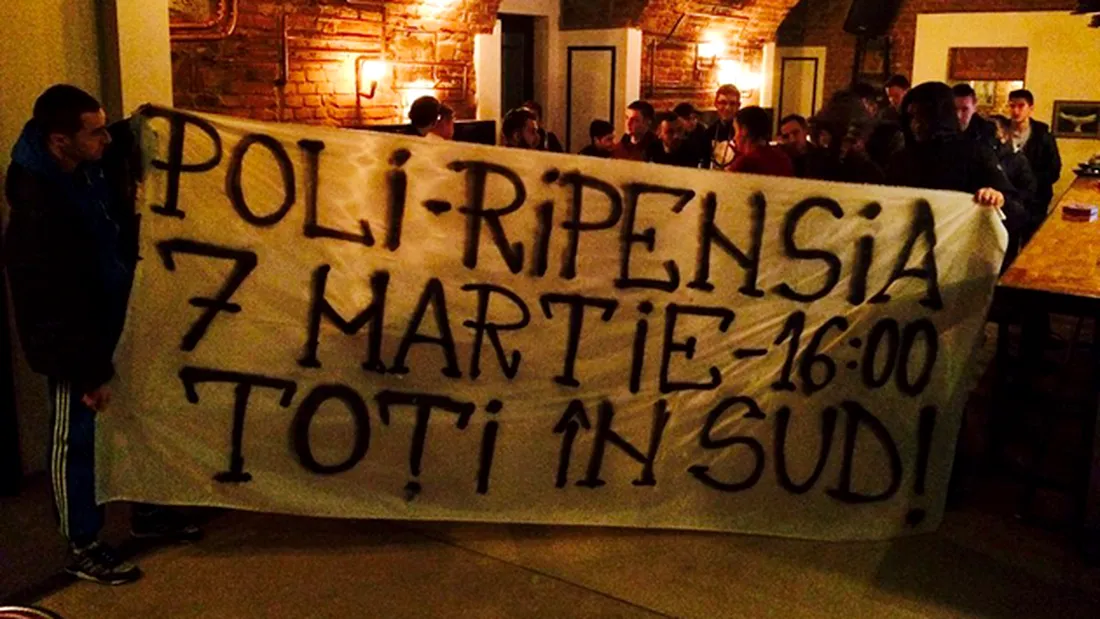 POLi-RiPENSiA
7 MARTiE-16:00
TOȚi ÎN SUD!